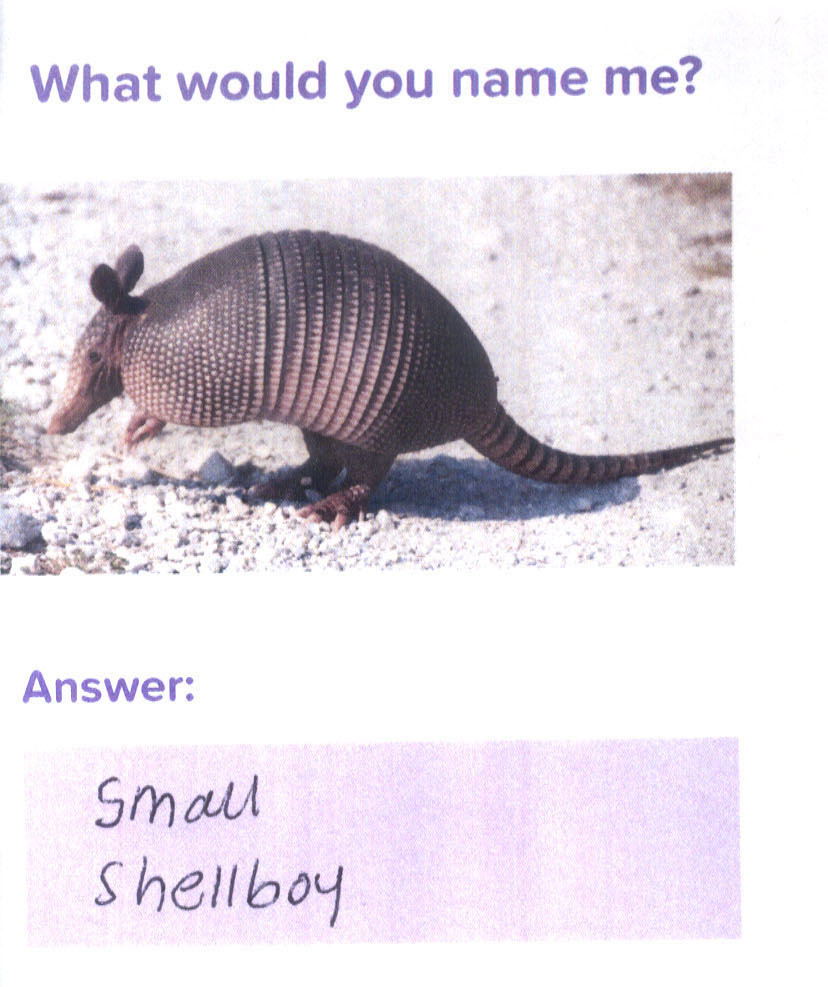 What would you name me?
Answer:
Small
Shellboy